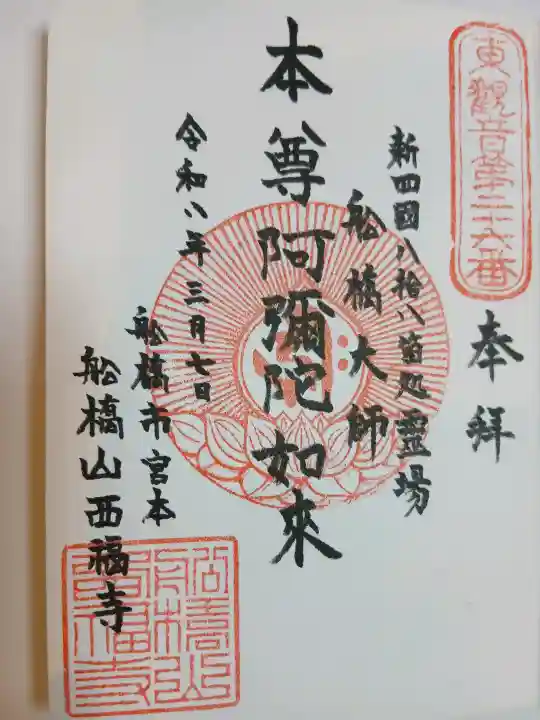 東觀音第二十六番
奉拜
新四國八拾八箇処霊場
船橋大師
本尊阿彌陀如來
令和八年三月七日
船橋市宮本
船橋山西福寺